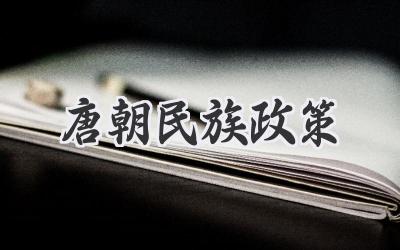 唐朝民族政策